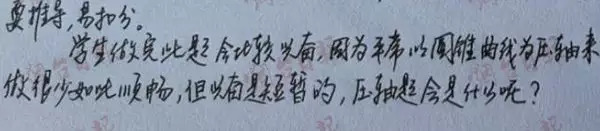 要推导,易扣分。
学生做完此题会比较兴奋,因为平常以圆锥曲线为压轴来
做很少如此顺畅,但兴奋是短暂的,压轴题会是什么呢?